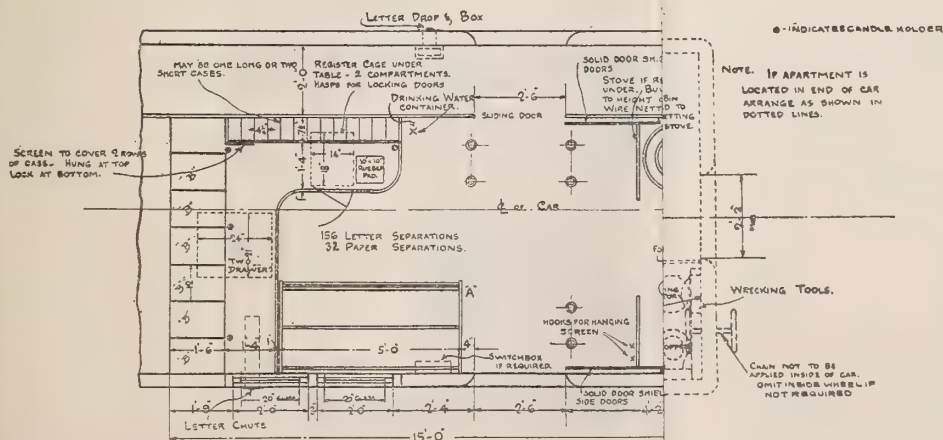 LETTER DROP & BOX
⊙-INDICATES CANDLE HOLDER
MAY BE ONE LONG OR TWO
SHORT CASES.
REGISTER CAGE UNDER
TABLE - 2 COMPARTMENTS.
HASPS FOR LOCKING DOORS
DRINKING WATER
CONTAINER.
2'-0"
2'-6"
SLIDING DOOR
SOLID DOOR
DOORS
STOVE IF
UNDER
TO HEIGHT
WIRE
STOVE.
NOTE. IF APARTMENT IS
LOCATED IN END OF CAR
ARRANGE AS SHOWN IN
DOTTED LINES.
SCREEN TO COVER 2 ROWS
OF CASE - HUNG AT TOP
LOCK AT BOTTOM.
1'-4"
16"
10"x10"
RUBBER
PAD.
℄ OF CAR
2'-2"
156 LETTER SEPARATIONS
32 PAPER SEPARATIONS.
24"
21"
TWO
DRAWERS
"A"
WRECKING TOOLS.
HOOKS FOR HANGING
SCREEN
1'-6"
5'-0"
4"
SWITCHBOX
IF REQUIRED
CHAIN NOT TO BE
APPLIED INSIDE OF CAR.
OMIT INSIDE WHEEL IF
NOT REQUIRED
20" GLASS
20" GLASS
SOLID DOOR
SIDE DOORS
1'-9"
2'-0"
2'-0"
2'-4"
2'-6"
LETTER CHUTE
15'-0"